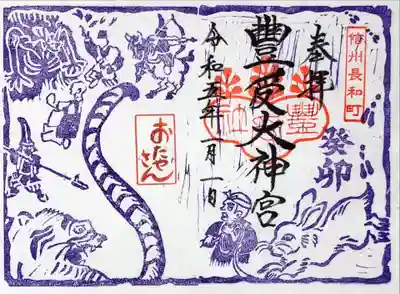 信州長和町
奉拝
癸卯
豐受大神宮
令和五年一月一日
おたやさん